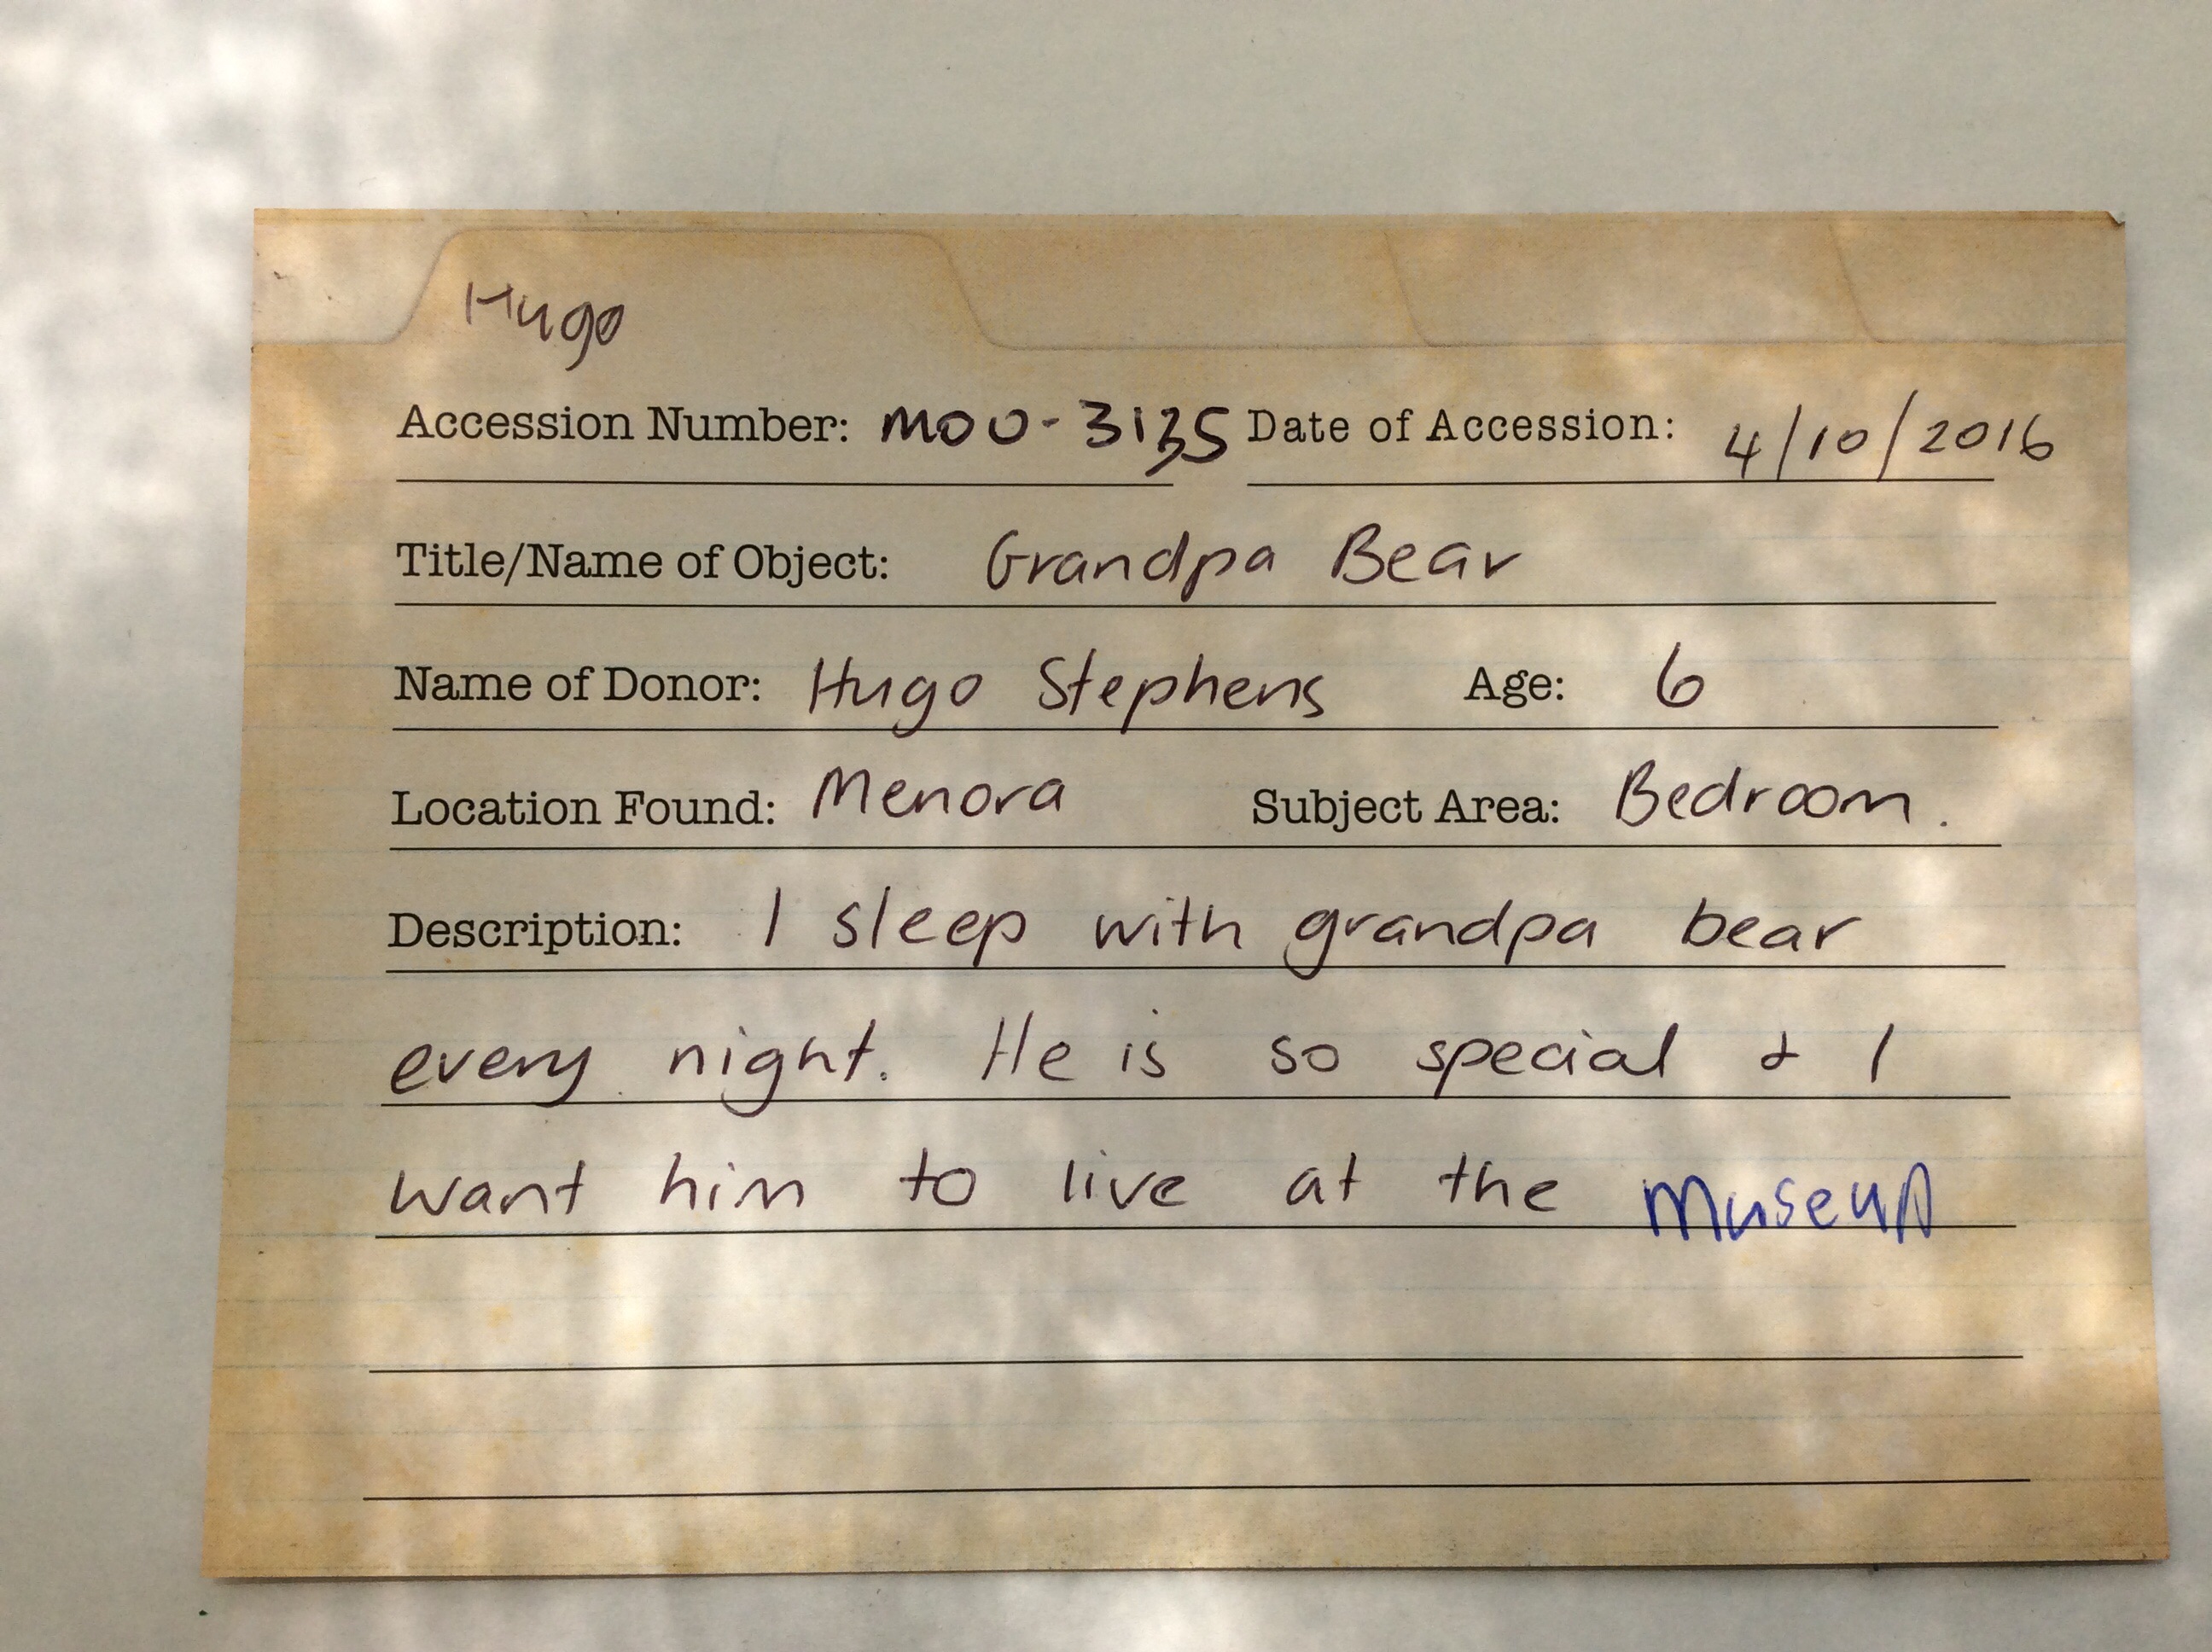 Hugo
Accession Number: MOU-3135 Date of Accession: 4/10/2016
Title/Name of Object: Grandpa Bear
Name of Donor: Hugo Stephens Age: 6
Location Found: Menora Subject Area: Bedroom.
Description: I sleep with grandpa bear
every night. He is so special & I
want him to live at the museum